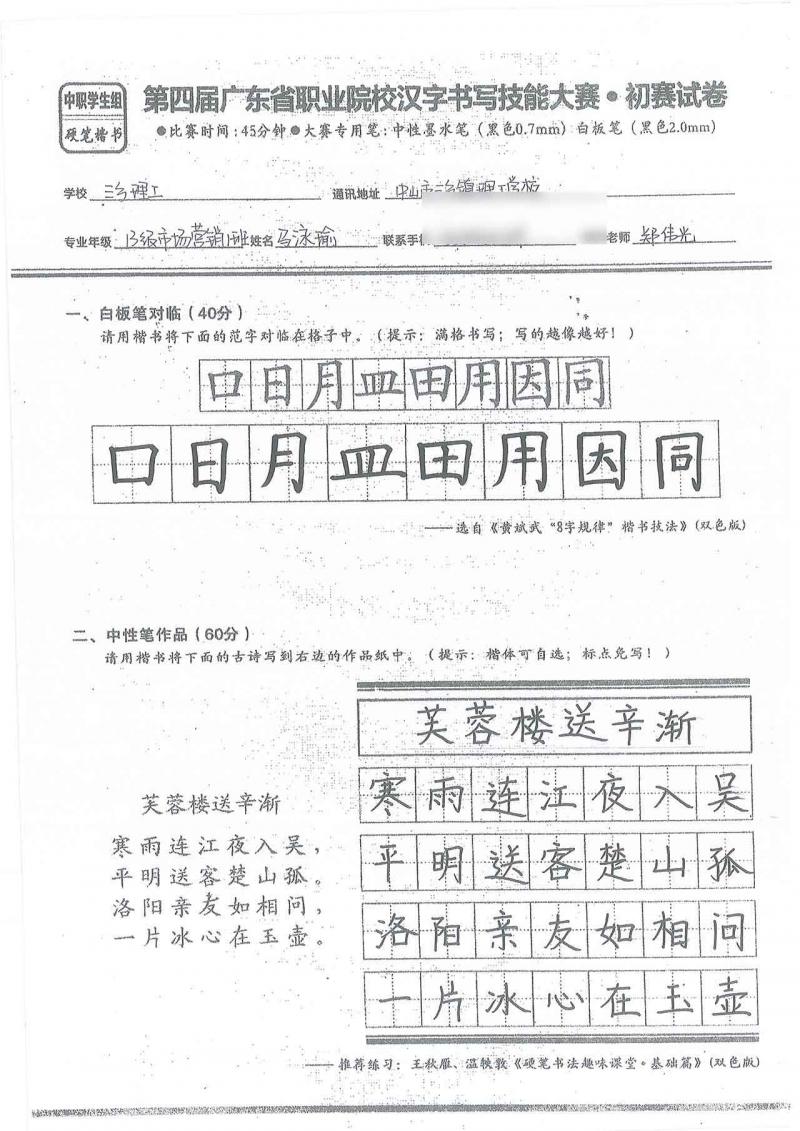 中职学生组
硬笔楷书
第四届广东省职业院校汉字书写技能大赛·初赛试卷
●比赛时间：45分钟●大赛专用笔：中性墨水笔（黑色0.7mm）白板笔（黑色2.0mm）
学校 三乡理工 通讯地址 中山市三乡镇理工学校
专业年级 13级市场营销1班 姓名 马泳瑜 联系手机 老师 郑伟光
一、白板笔对临（40分）
请用楷书将下面的范字对临在格子中。（提示：满格书写；写的越像越好！）
口日月皿田用因同
口日月皿田用因同
——选自《黄斌武“8字规律”楷书技法》(双色版)
二、中性笔作品（60分）
请用楷书将下面的古诗写到右边的作品纸中。（提示：楷体可自选；标点免写！）
芙蓉楼送辛渐
寒雨连江夜入吴，
平明送客楚山孤。
洛阳亲友如相问，
一片冰心在玉壶。
芙蓉楼送辛渐
寒雨连江夜入吴
平明送客楚山孤
洛阳亲友如相问
一片冰心在玉壶
——推荐练习：王秋雁、温轶敦《硬笔书法趣味课堂·基础篇》(双色版)